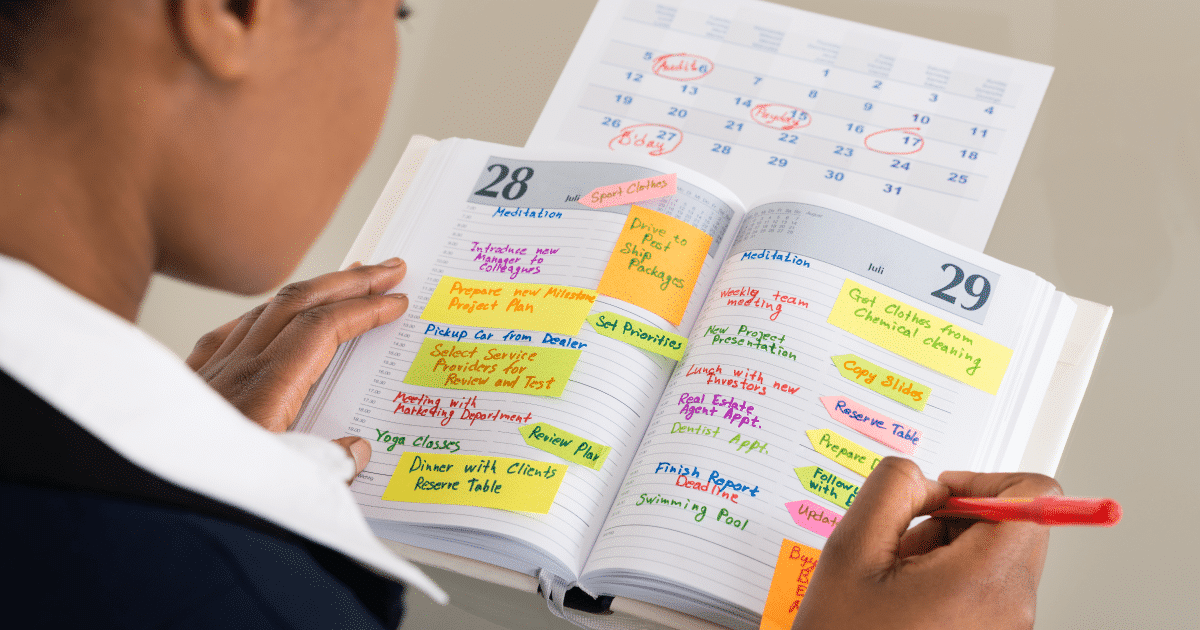 5
Audit 6
7
1
2
3
4
12
13
14
Payday 15
8
9
10
11
19
20
21
22
16
17
18
26
B'day 27
28
29
23
24
25
30
31
28
Juli
Sport Clothes
Meditation
Drive to
Post
Ship
Packages
Introduce new
Manager to
Colleagues
Prepare new Milestone
Project Plan
Set Priorities
Pickup Car from Dealer
Select Service
Providers for
Review and Test
Meeting with
Marketing Department
Review Plan
Yoga Classes
Dinner with Clients
Reserve Table
Juli
29
Meditation
Weekly team
meeting
Get Clothes from
Chemical cleaning
New Project
Presentation
Copy Slides
Lunch with new
Investors
Reserve Table
Real Estate
Agent Appt.
Dentist Appt.
Prepare
Follow
with
Finish Report
Deadline
Update
Swimming Pool